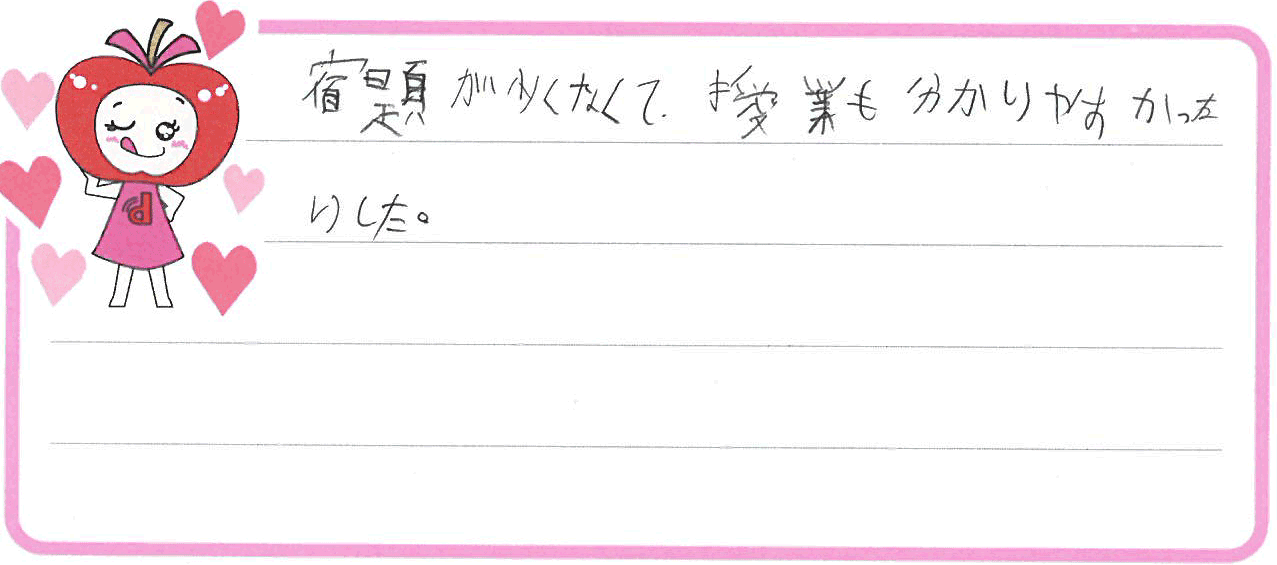 宿題が少くなくて、授業も分かりやすかった
りした。